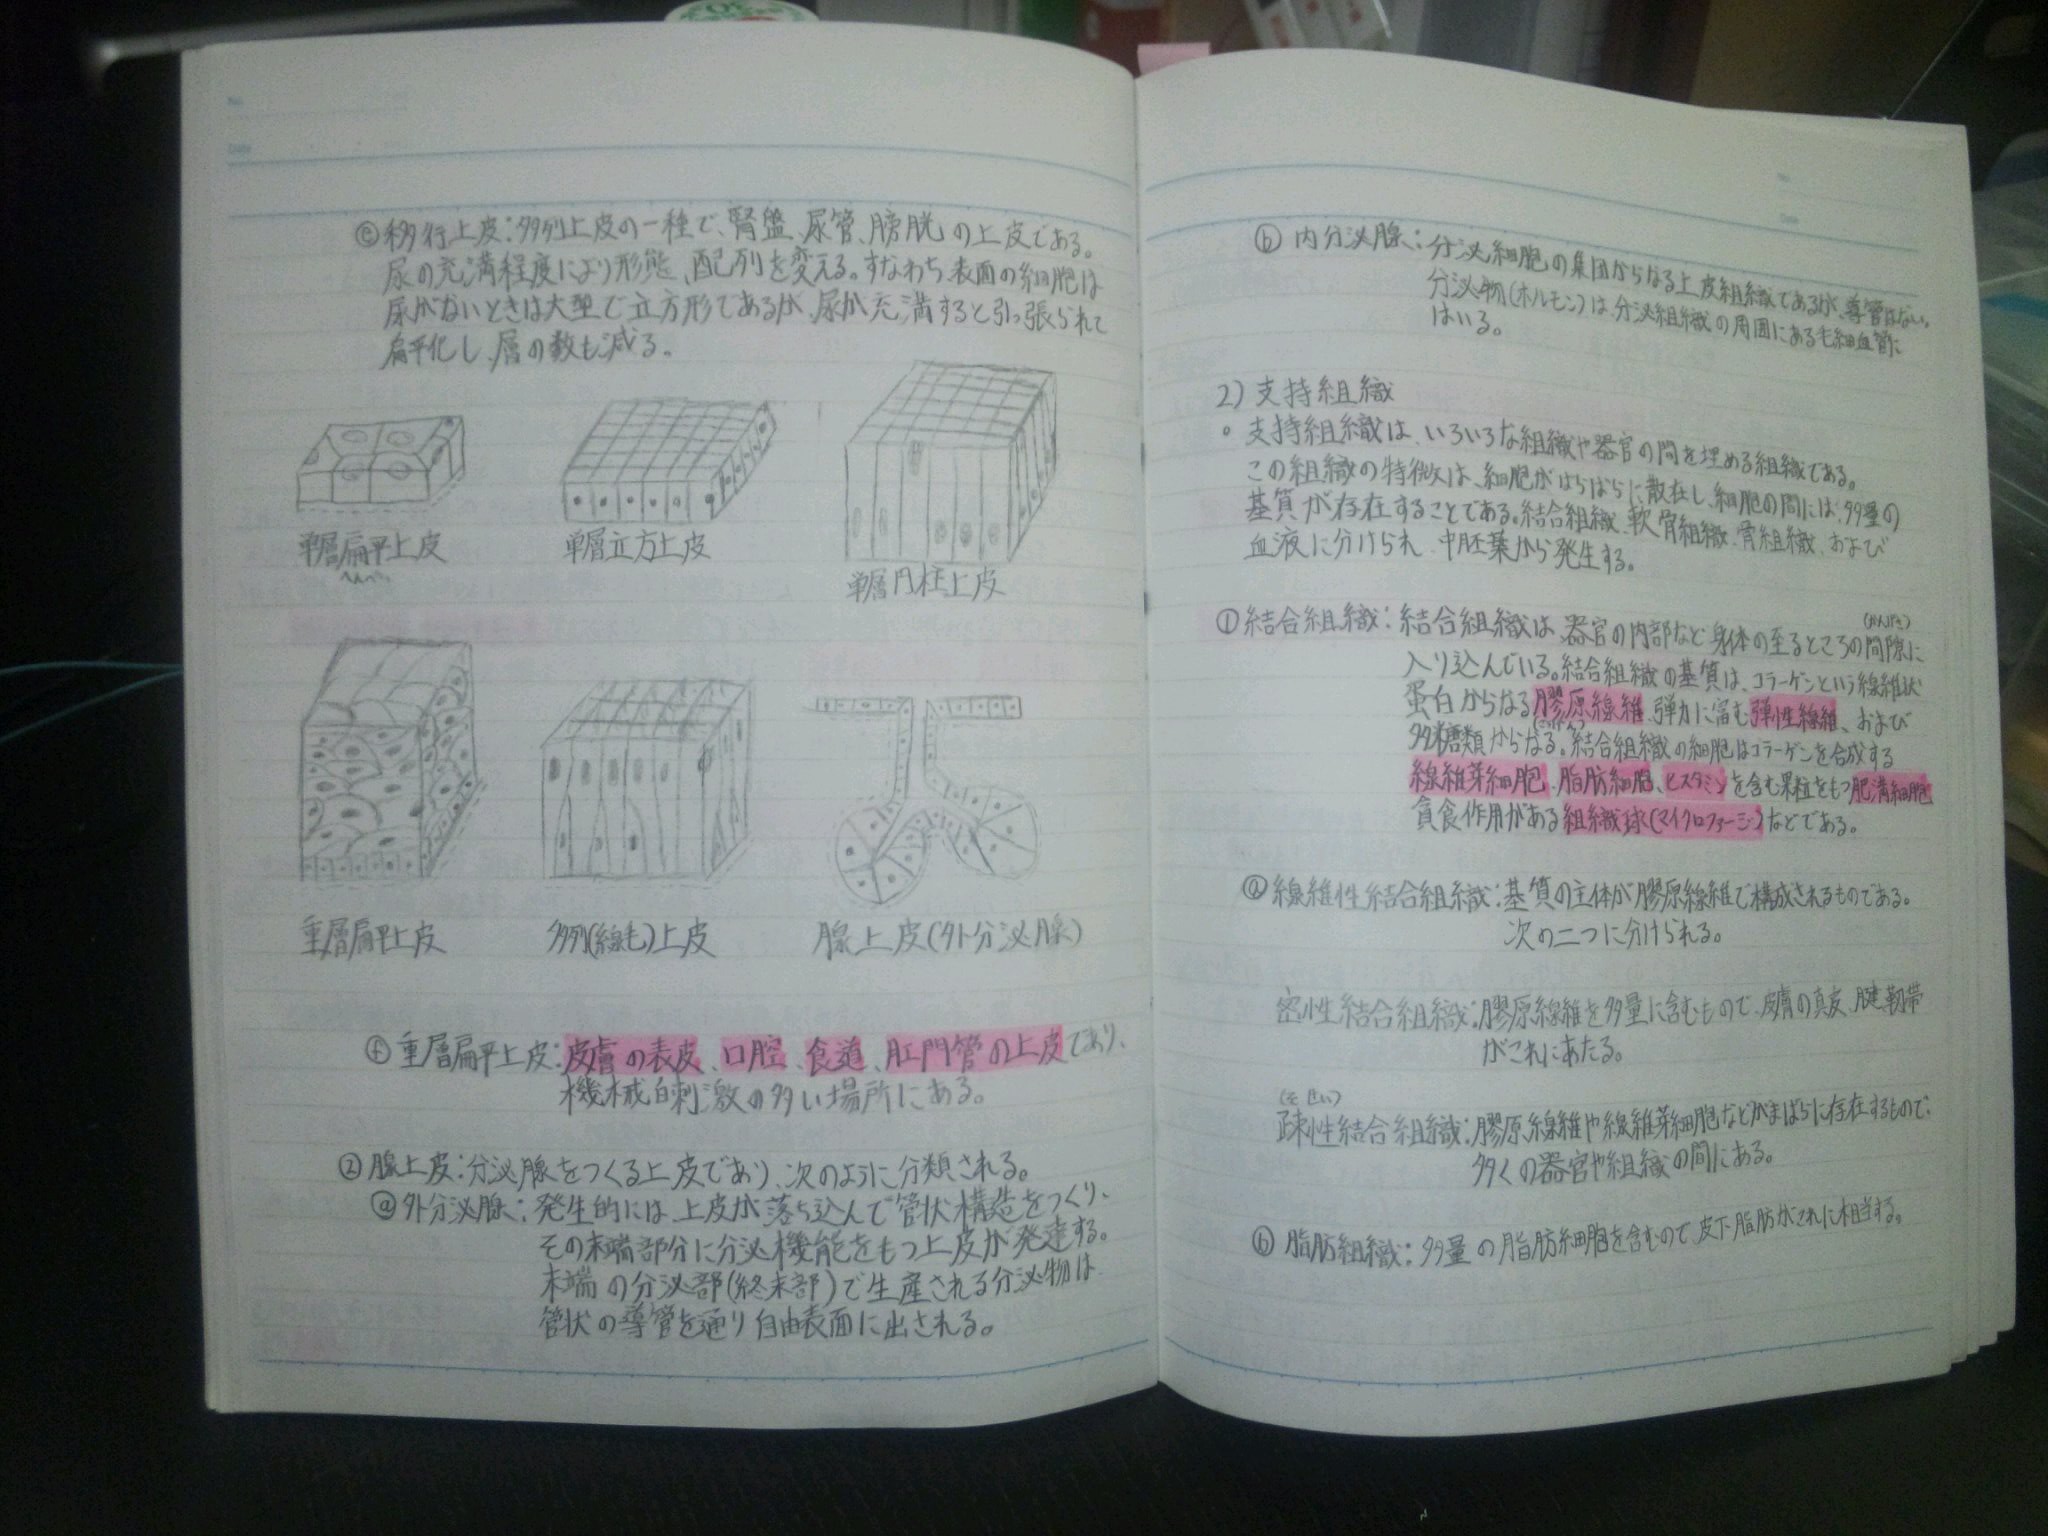 No.
Date
ⓔ移行上皮:多列上皮の一種で、腎盤、尿管、膀胱の上皮である。
尿の充満程度により形態、配列を変える。すなわち、表面の細胞は
尿がないときは大型で立方形であるが、尿が充満すると引っ張られて
扁平化し、層の数も減る。
単層扁平上皮
単層立方上皮
単層円柱上皮
重層扁平上皮
多列(線毛)上皮
腺上皮(外分泌腺)
ⓕ重層扁平上皮:皮膚の表皮、口腔、食道、肛門管の上皮であり、
機械的刺激の多い場所にある。
②腺上皮:分泌腺をつくる上皮であり、次のように分類される。
ⓐ外分泌腺:発生的には、上皮が落ち込んで管状構造をつくり、
その末端部分に分泌機能をもつ上皮が発達する。
末端の分泌部(終末部)で生産される分泌物は、
管状の導管を通り自由表面に出される。
No.
Date
ⓑ内分泌腺:分泌細胞の集団からなる上皮組織であるが、導管はない。
分泌物(ホルモン)は、分泌組織の周囲にある毛細血管に
はいる。
2)支持組織
。支持組織は、いろいろな組織や器官の間を埋める組織である。
この組織の特徴は、細胞がばらばらに散在し、細胞の間には、多量の
基質が存在することである。結合組織、軟骨組織、骨組織、および
血液に分けられ、中胚葉から発生する。
①結合組織:結合組織は、器官の内部など身体の至るところの間隙に
(かんげき)
入り込んでいる。結合組織の基質は、コラーゲンという線維状
蛋白からなる膠原線維、弾力に富む弾性線維、および
多糖類からなる。結合組織の細胞はコラーゲンを合成する
線維芽細胞、脂肪細胞、ヒスタミンを含む果粒をもつ肥満細胞
貪食作用がある組織球(マイクロファージ)などである。
ⓐ線維性結合組織:基質の主体が膠原線維で構成されるものである。
次の二つに分けられる。
密性結合組織:膠原線維を多量に含むもので、皮膚の真皮、腱、靭帯
がこれにあたる。
(そせい)
疎性結合組織:膠原線維や線維芽細胞などがまばらに存在するもので、
多くの器官や組織の間にある。
ⓑ脂肪組織:多量の脂肪細胞を含むので、皮下脂肪がこれに相当する。